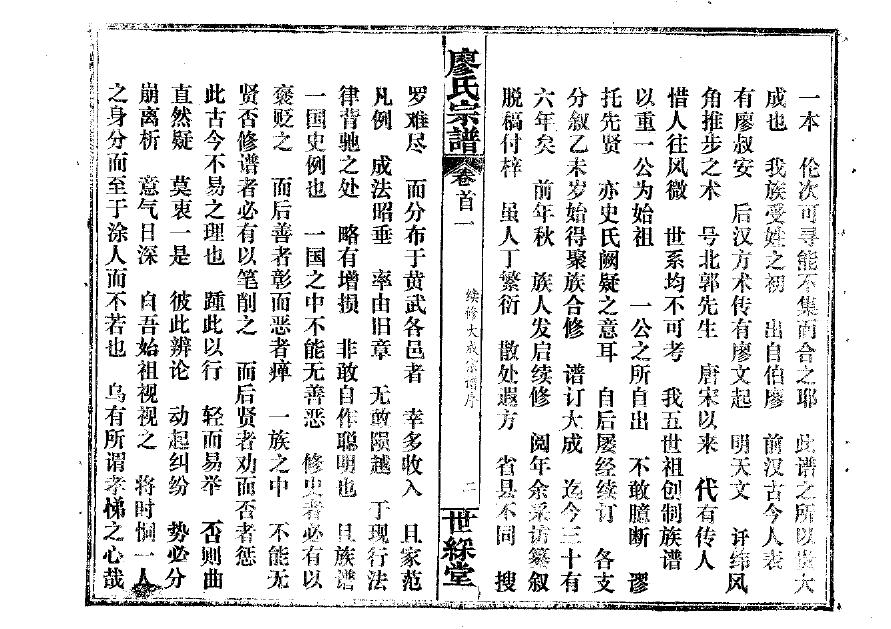 一本 伦次可寻能不集而合之耶 此谱之所以贵大
成也 我族受姓之初 出自伯廖 前汉古今人表
有廖叔安 后汉方术传有廖文起 明天文 评纬风
角推步之术 号北郭先生 唐宋以来 代有传人
惜人往风微 世系均不可考 我五世祖创制族谱
以重一公为始祖 一公之所自出 不敢臆断 谬
托先贤 亦史氏阙疑之意耳 自后屡经续订 各支
分叙乙未岁始得聚族合修 谱订大成 迄今三十有
六年矣 前年秋 族人发启续修 阅年余采访纂叙
脱稿付梓 虽人丁繁衍 散处遐方 省县不同 搜
廖氏宗譜 卷首一 续修大成宗谱序 二 世綵堂
罗难尽 而分布于黄武各邑者 幸多收入 且家范
凡例 成法昭垂 率由旧章 无敢陨越 于现行法
律背驰之处 略有增损 非敢自作聪明也 且族谱
一国史例也 一国之中不能无善恶 修史者必有以
褒贬之 而后善者彰而恶者瘅 一族之中 不能无
贤否修谱者必有以笔削之 而后贤者劝而否者惩
此古今不易之理也 踵此以行 轻而易举 否则曲
直然疑 莫衷一是 彼此辨论 动起纠纷 势必分
崩离析 意气日深 自吾始祖视视之 将时恫一人
之身分而至于涂人而不若也 乌有所谓孝悌之心哉